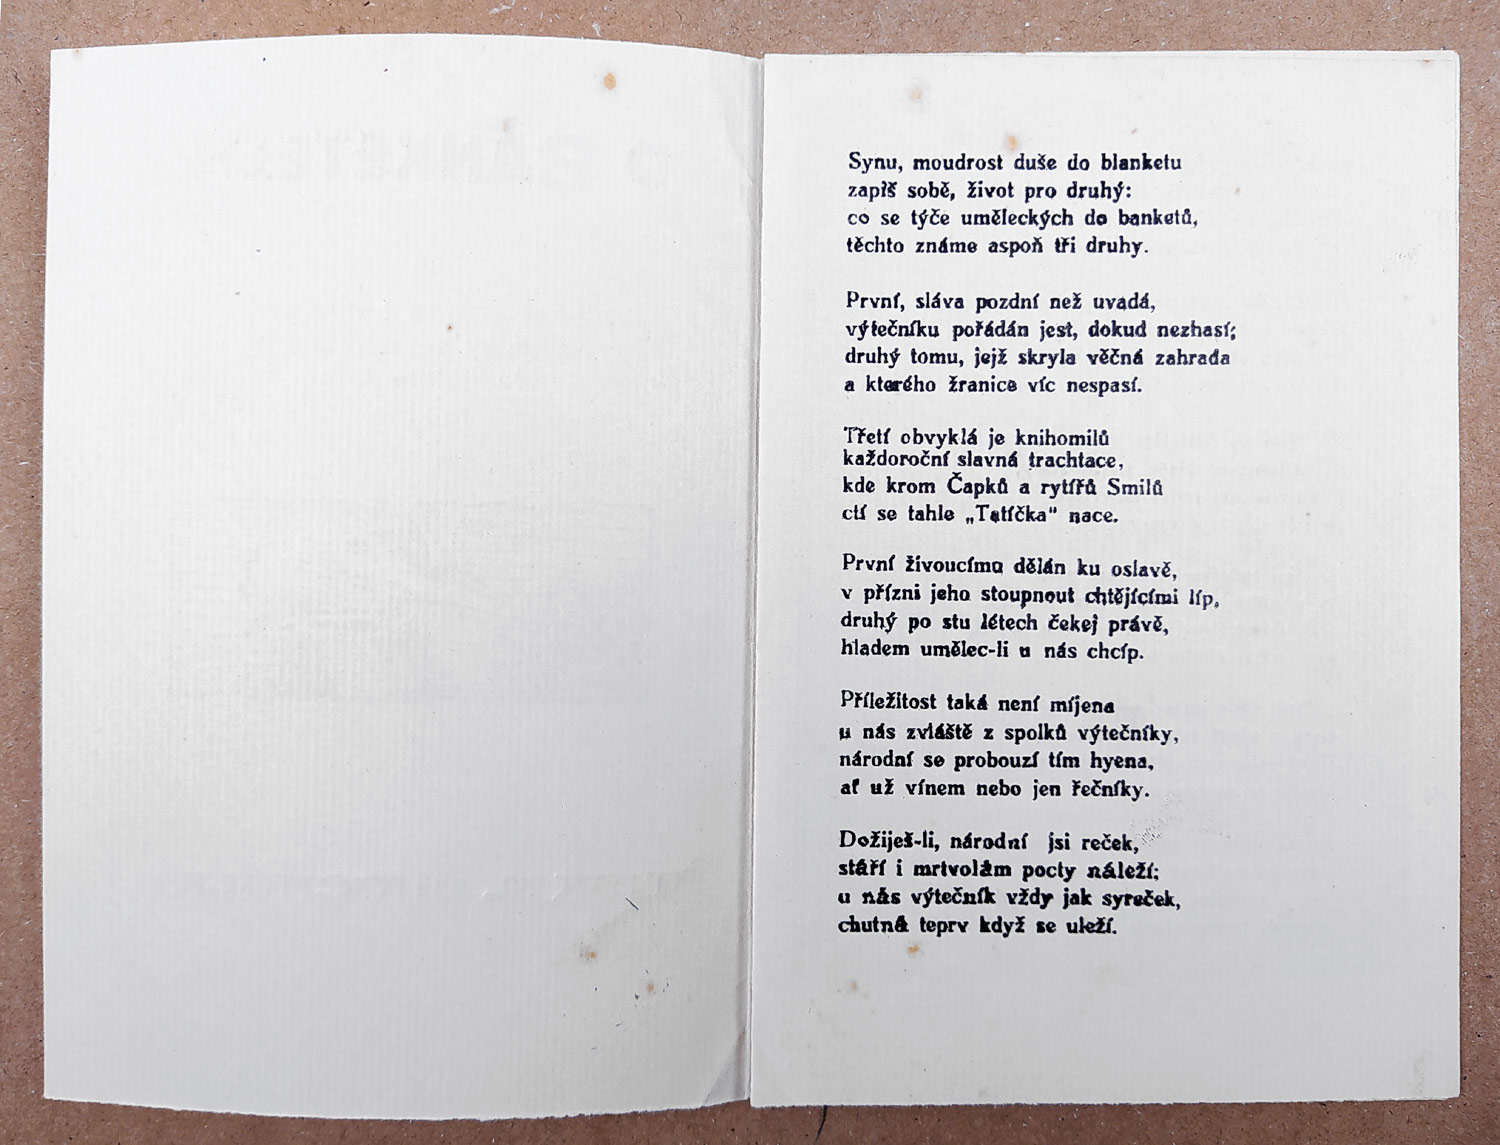 Synu, moudrost duše do blanketu
zapiš sobě, život pro druhý:
co se týče uměleckých do banketů,
těchto známe aspoň tři druhy.
První, sláva pozdní než uvadá,
výtečníku pořádán jest, dokud nezhasí;
druhý tomu, jejž skryla věčná zahrada
a kterého žranice víc nespasí.
Třetí obvyklá je knihomilů
každoroční slavná trachtace,
kde krom Čapků a rytířů Smilů
ctí se tahle „Tatíčka" nace.
První živoucímu dělán ku oslavě,
v přízni jeho stoupnout chtějícími líp,
druhý po stu létech čekej právě,
hladem umělec-li u nás chcíp.
Příležitost taká není míjena
u nás zvláště z spolků výtečníky,
národní se probouzí tím hyena,
ať už vínem nebo jen řečníky.
Dožiješ-li, národní jsi reček,
stáří i mrtvolám pocty náleží;
u nás výtečník vždy jak syreček,
chutná teprv když se uleží.